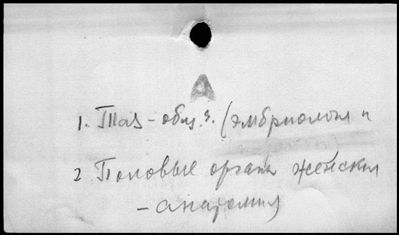 А
1. Таз - общ. ч. (эмбриология и
2 Половые органы женские
- анатомия